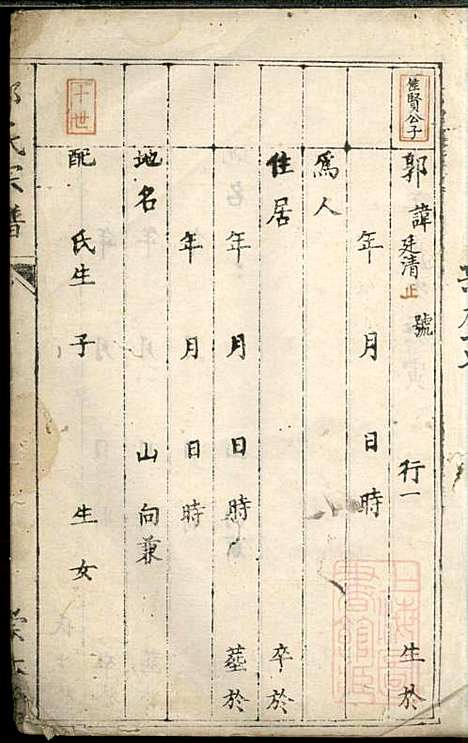 佳賢公子
郭 諱廷清 止 號 行一 生於
年 月 日 時
爲人
住居 卒於
年 月 日 時 墓於
年 月 日 時
地名 山向兼
十世
配 氏生 子 生女
氏宗譜